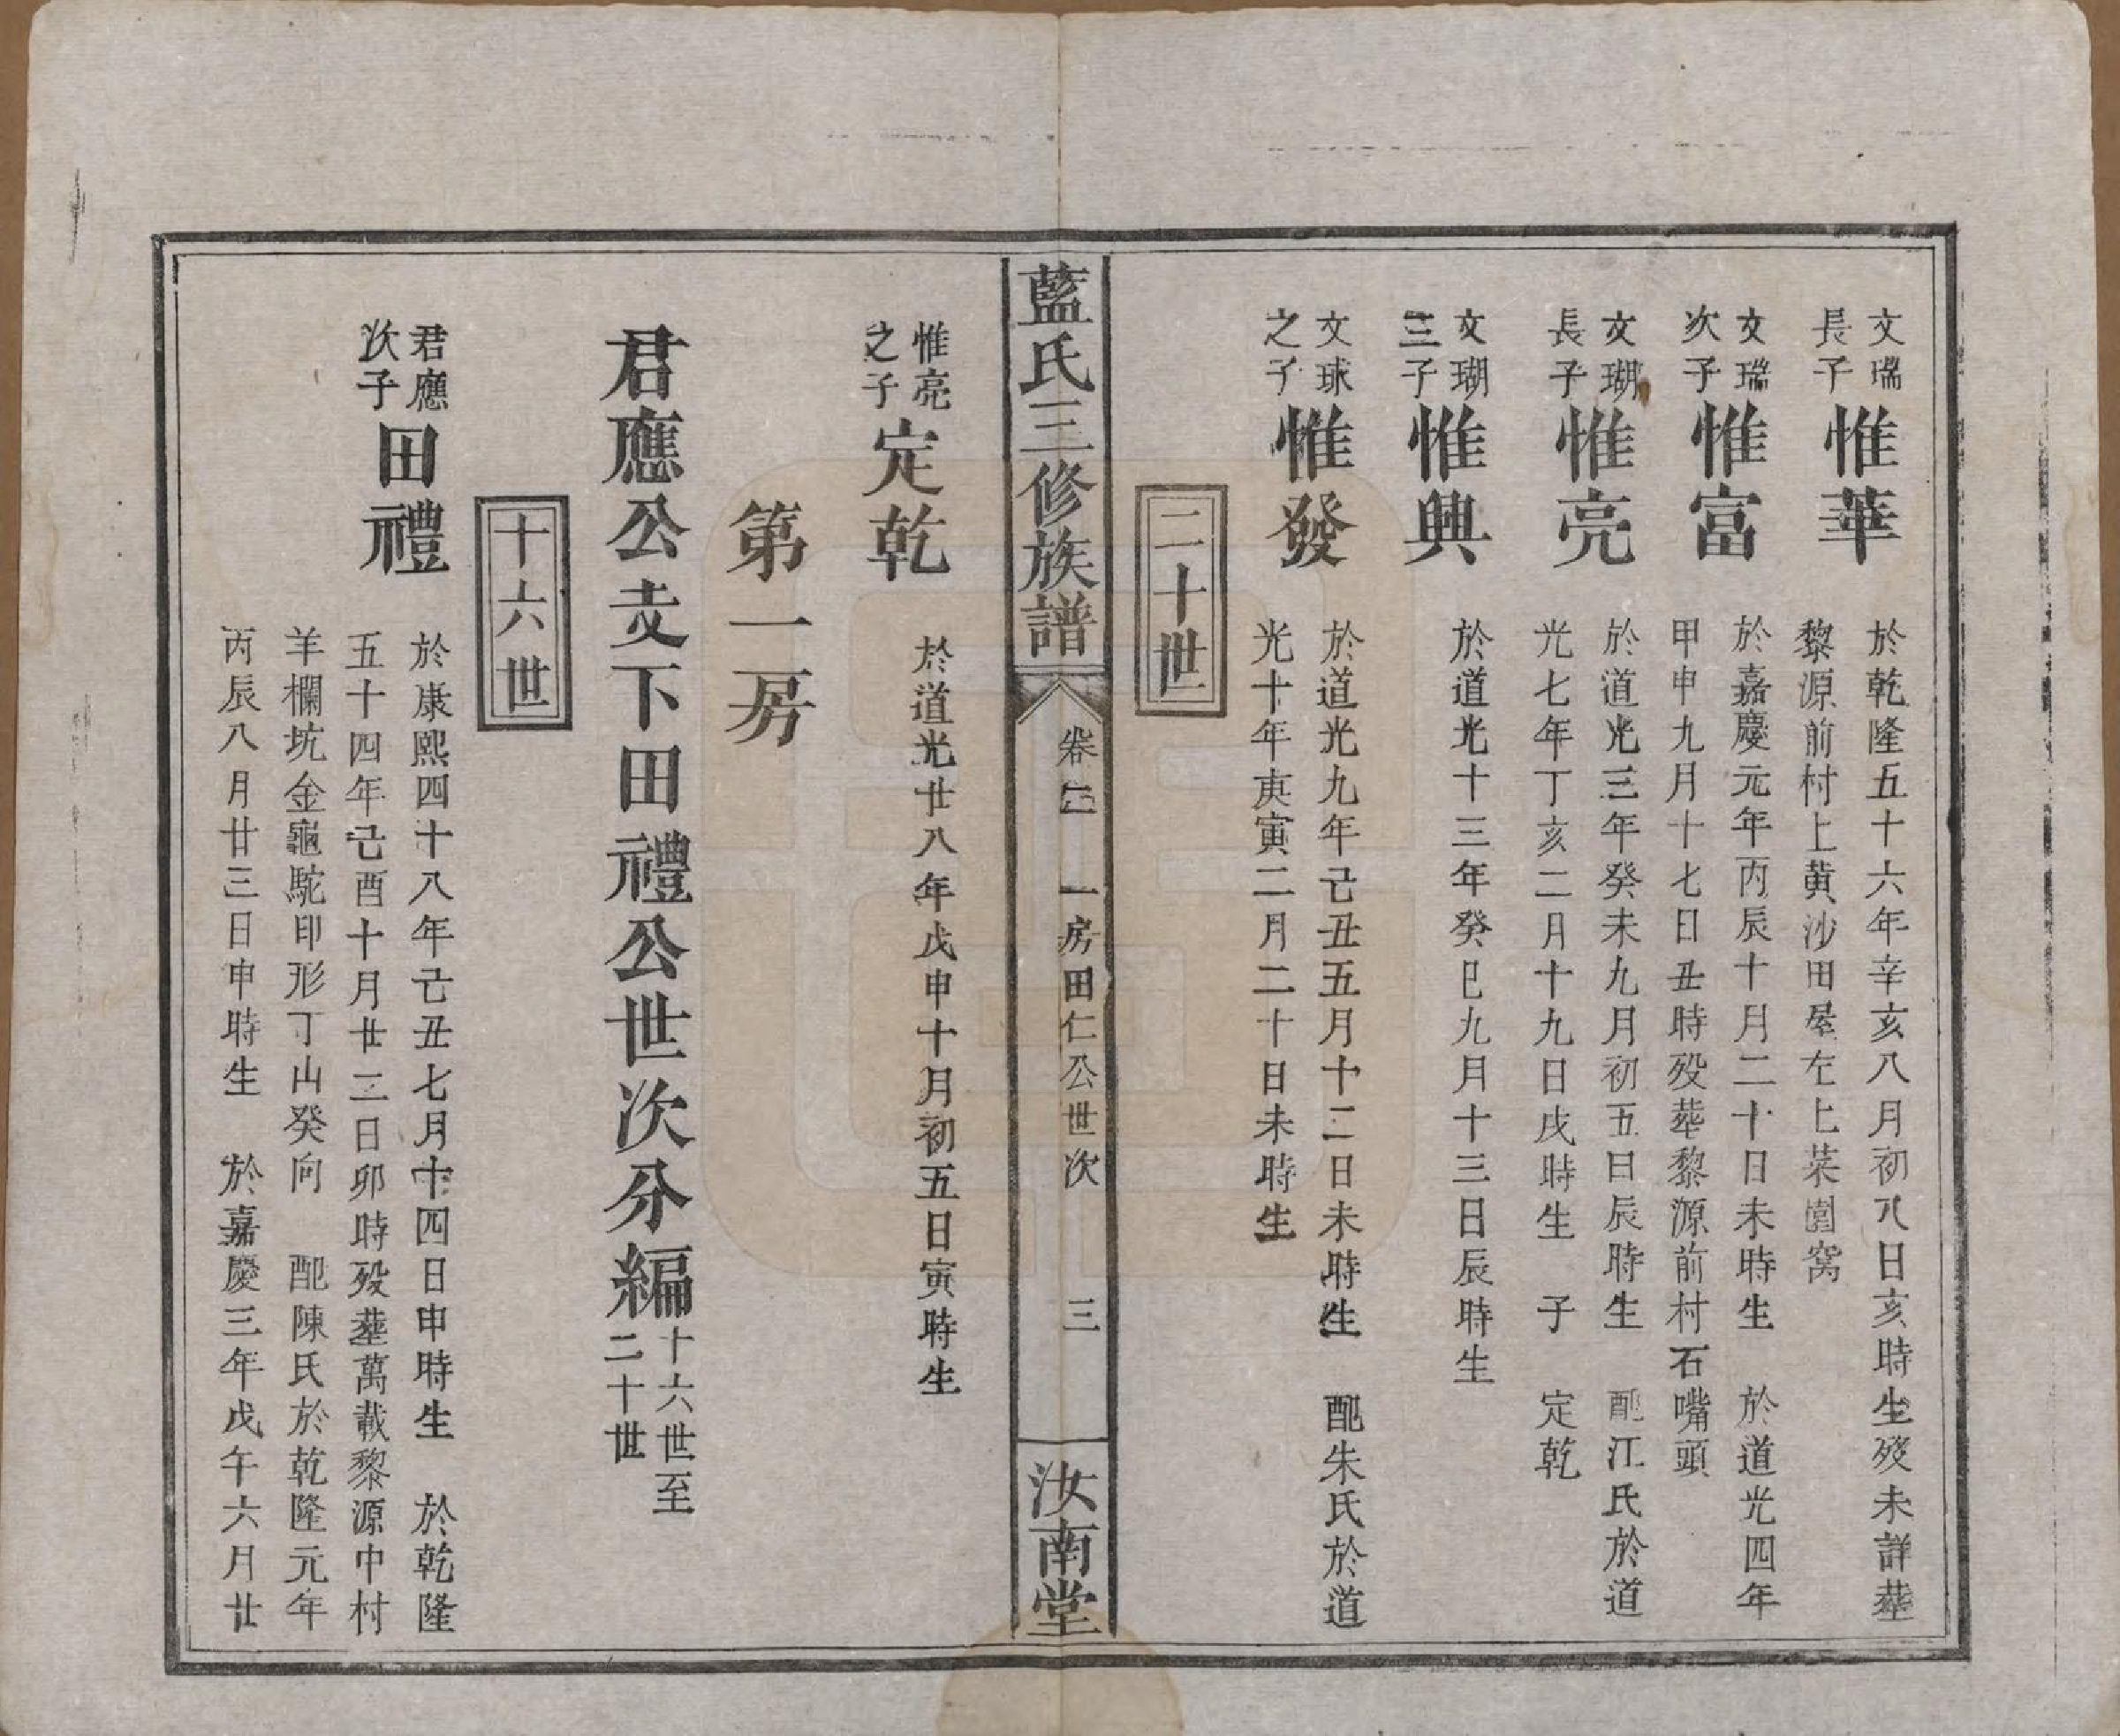 文瑞
長子
惟華
於乾隆五十六年辛亥八月初八日亥時生歿未詳塟
黎源前村上黃沙田屋左上菜園窩
文瑞
次子
惟富
於嘉慶元年丙辰十月二十日未時生　於道光四年
甲申九月十七日丑時歿塟黎源前村石嘴頭
文瑚
長子
惟亮
於道光三年癸未九月初五日辰時生　配江氏於道
光七年丁亥二月十九日戌時生　子　定乾
文瑚
三子
惟興
於道光十三年癸巳九月十三日辰時生
文球
之子
惟發
於道光九年己丑五月十二日未時生　配朱氏於道
光十年庚寅二月二十日未時生
二十世
藍氏三修族譜
卷　一房田仁公世次　三
汝南堂
惟亮
之子
定乾
於道光廿八年戊申十月初五日寅時生
第一房
君應公支下田禮公世次分編
十六世至
二十世
十六世
君應
次子
田禮
於康熙四十八年己丑七月十四日申時生　於乾隆
五十四年己酉十月廿二日卯時歿塟萬載黎源中村
羊欄坑金龜駝印形丁山癸向　配陳氏於乾隆元年
丙辰八月廿三日申時生　於嘉慶三年戊午六月廿